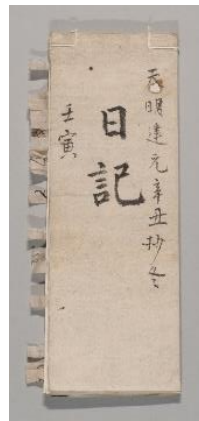 天明建元辛丑抄冬
日記
壬寅